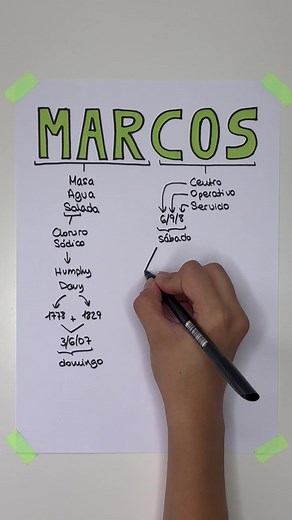 MARCOS
Masa
Agua
Salada
Cloruro
Sódico
Humphy
Davy
1778 + 1829
3/6/07
domingo
Centro
Operativo
Servicio
6/9/8
Sábado